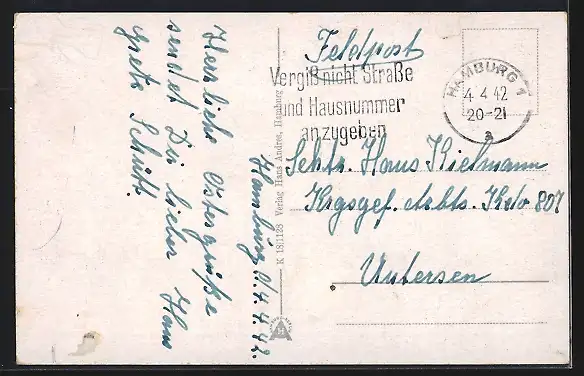 Herzliche Ostergrüße
sendet Dir lieber Hans
Grete Schütt.
Hamburg, d. 4.4.42.
K 18/1123 Verlag Hans Andres, Hamburg
Feldpost
Vergiß nicht Straße
und Hausnummer
anzugeben
HAMBURG 1
4.4.42
20-21
a
Schtz. Hans Kielmann
Krgsgef. Arbts. Kdo 807
Uetersen